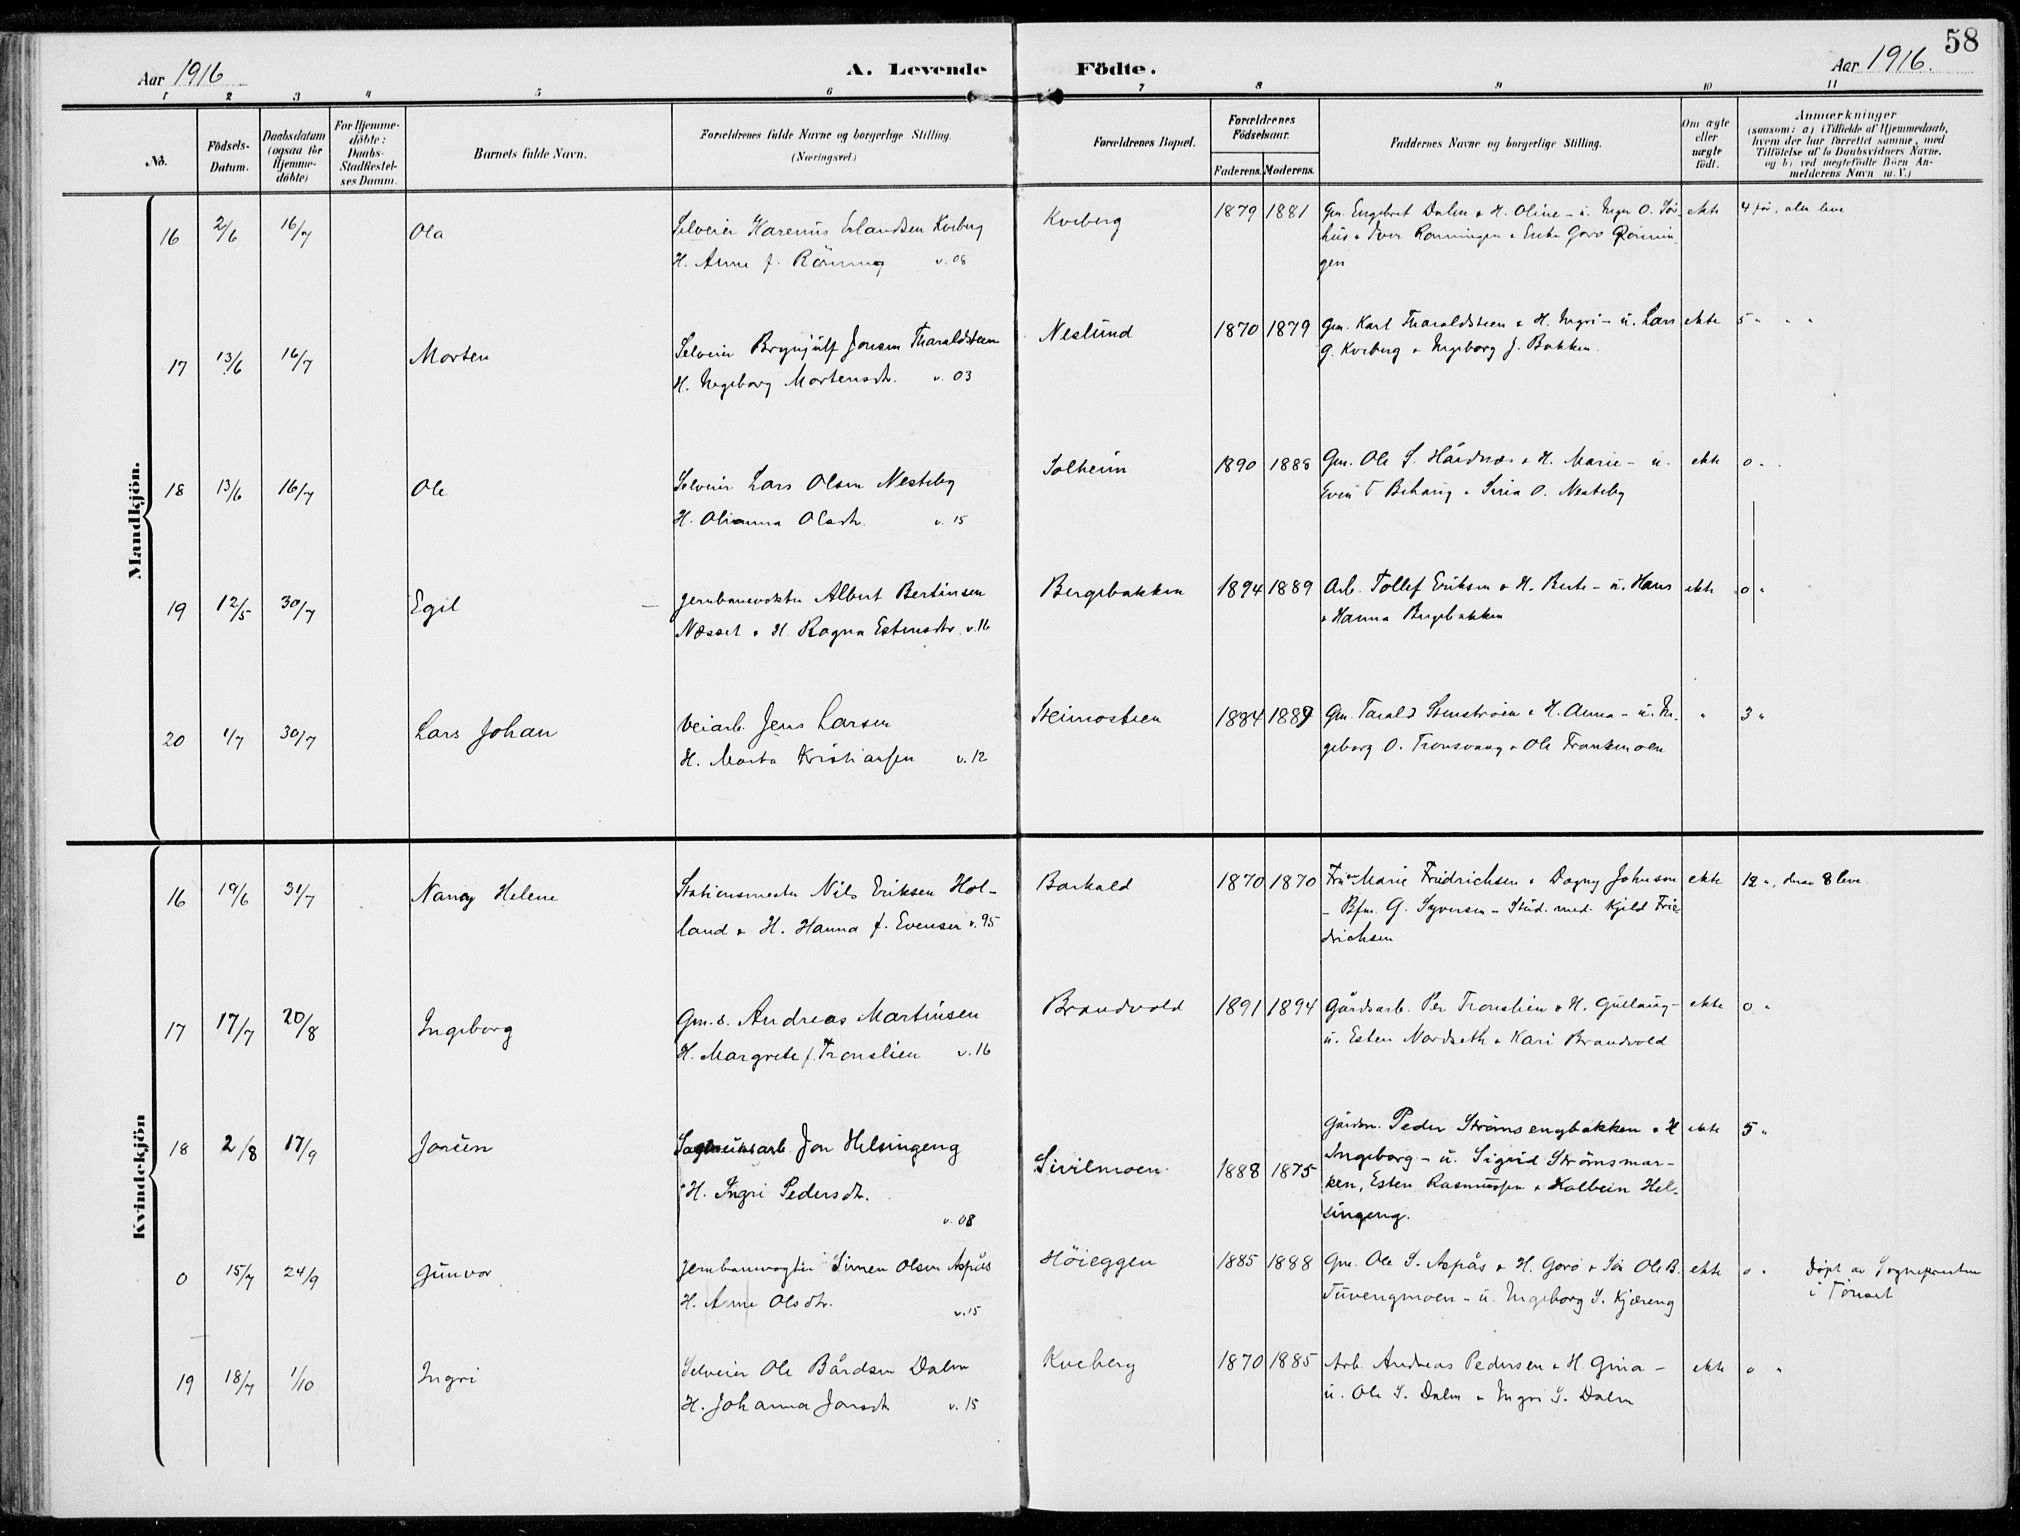 58
Aar 1916
A. Levende
Födte.
Aar 1916.
1 2 3 4 5 6 7 8 9 10 11
No.
Födsels-
Datum.
Daabsdatum
(ogsaa for
Hjemme-
döbte)
For Hjemme-
döbte:
Daabs-
Stadfæstel-
ses Datum.
Barnets fulde Navn.
Forældrenes fulde Navne og borgerlige Stilling.
(Næringsvei.)
Forældrenes Bopæl.
Forældrenes
Födselsaar.
Faderens. Moderens.
Faddernes Navne og borgerlige Stilling.
Om ægte
eller
uægte
födt.
Anmærkninger
(saasom: a) i Tilfælde af Hjemmedaab,
hvem der har forrettet samme, med
Tilföielse af to Daabsvidners Navne.
og b) ved uægtefödte Börn An-
melderens Navn m. V.)
Mandkjön.
16 2/6 16/7 Ola
Selveier Harenius Erlandsen Kveberg
H. Anne f. Rönning v. 08
Kveberg 1879 1881
Gm. Engebret Dalen & H. Oline - u. Inger O. Sör-
hus & Iver Rönningen & Enke Goro Rönnin-
gen
ekte 4 för, alle leve
17 13/6 16/7 Morten
Selveier Brynjulf Jonsen Tharaldsteen
H. Ingeborg Mortensdtr. v. 03
Neslund 1870 1879
Gm. Karl Tharaldsteen & H. Ingri - u. Lars
G. Kveberg & Ingeborg J. Bakken.
ekte 5 " " "
18 13/6 16/7 Ole
Selveier Lars Olsen Nesteby
H. Olianna Olsdtr. v. 15
Solheim 1890 1888
Gm. Ole S. Hårdnæs & H. Marie - u.
Even T. Behaug & Siria O. Nesteby
ekte 0 "
19 12/5 30/7 Egil
Jernbanevokter Albert Bertinsen
Næsset & H. Ragna Estensdtr. v. 16
Bergebakken 1894 1889
Arb. Tollef Eriksen & H. Berte - u. Hans
& Hanna Bergebakken
ekte 0 "
20 1/7 30/7 Lars Johan
Veiarb. Jens Larsen
H. Marta Kristiansen v. 12
Steimosteen 1884 1889
Gm. Tarald Stenströen & H. Anna - u. In-
geborg O. Tronsvang & Ole Fransmoen
" 3 "
Kvindekjön
16 19/6 31/7 Nancy Helene
Stationsmester Nils Eriksen Hol-
land & H. Hanna f. Evensen v. 95
Barkald 1870 1870
Fru Marie Fridrichsen & Dagny Johnson
- Bfm. G. Syversen - Stud. med. Kjeld Frie-
drichsen
ekte 12 ", derav 8 leve.
17 17/7 20/8 Ingeborg
Gm. s. Andreas Martinsen
H. Margrete f. Tronslien v. 16
Brandvold 1891 1894
Gårdsarb. Per Tronslien & H. Gullaug -
u. Esten Nordseth & Kari Brandvold
ekte 0 "
18 2/8 17/9 Jorun
Sagbruksarb. Jon Helsingeng
H. Ingri Pedersdtr.
v. 08
Sivilmoen. 1888 1875
Gårdm. Peder Strömsengbakken & H
Ingeborg - u. Sigrid Strömsmar-
ken, Esten Rasmussen & Halbein Hel-
singeng.
ekte 5 "
0 15/7 24/9 Gunvor
Jernbanevogter Simen Olsen Aspås
H. Anne Olsdtr. v. 15
Höieggen 1885 1888
Gm. Ole S. Aspås & H. Goro & Ole B.
Tuvengmoen - u. Ingeborg S. Kjæreng
ekte 0 " Döpt av Sogneprесten
i Tönset
19 18/7 1/10 Ingri
Selveier Ole Bårdsen Dalen
H. Johanna Jonsdtr v. 15
Kveberg 1870 1885
Arb. Andreas Pedersen & H. Gina -
u. Ole S. Dalen & Ingri S. Dalen
ekte 0 "